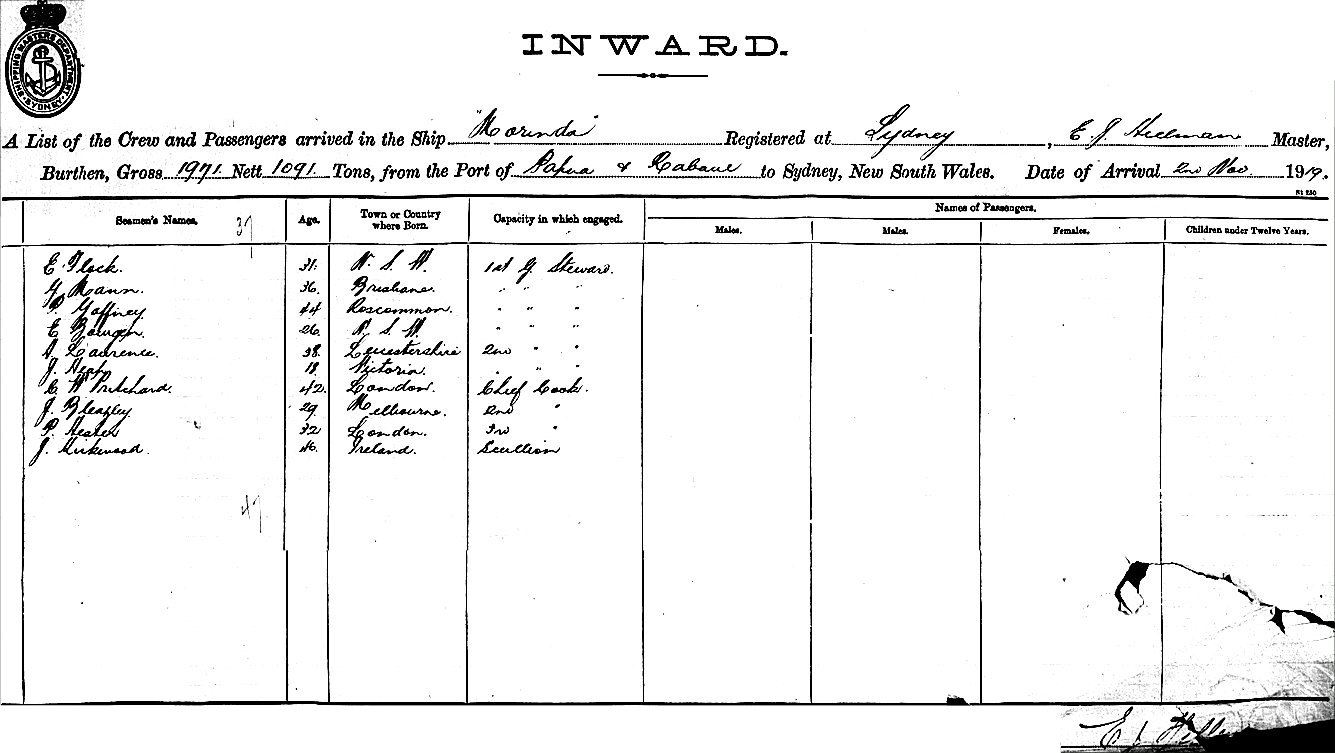 SHIPPING MASTERS DEPARTMENT
SYDNEY
INWARD.
A List of the Crew and Passengers arrived in the Ship "Morinda" Registered at Sydney, E J Hillman Master,
Burthen, Gross 1971 Nett 1091 Tons, from the Port of Papua & Rabaul to Sydney, New South Wales. Date of Arrival 2nd Nov 1919.
Seamen's Names. 37 Age. Town or Country where Born. Capacity in which engaged. Names of Passengers.
Males. Males. Females. Children under Twelve Years.
E. Flock. 31. N. S. W. 1st G Steward.
G Mann. 36. Brisbane. " " "
P. Gaffney 44 Roscommon. " " "
E 26 N. S. W. " " "
A Laurence. 38. Leicestershire 2nd " "
J. 18 Victoria. " " "
C W Pritchard. 42. London. Chief Cook.
J. Bleazley 29 Melbourne. 2nd "
P. Hester 32 London. 3rd "
J. Kirkwood. 46. Ireland. Scullion
47
E J